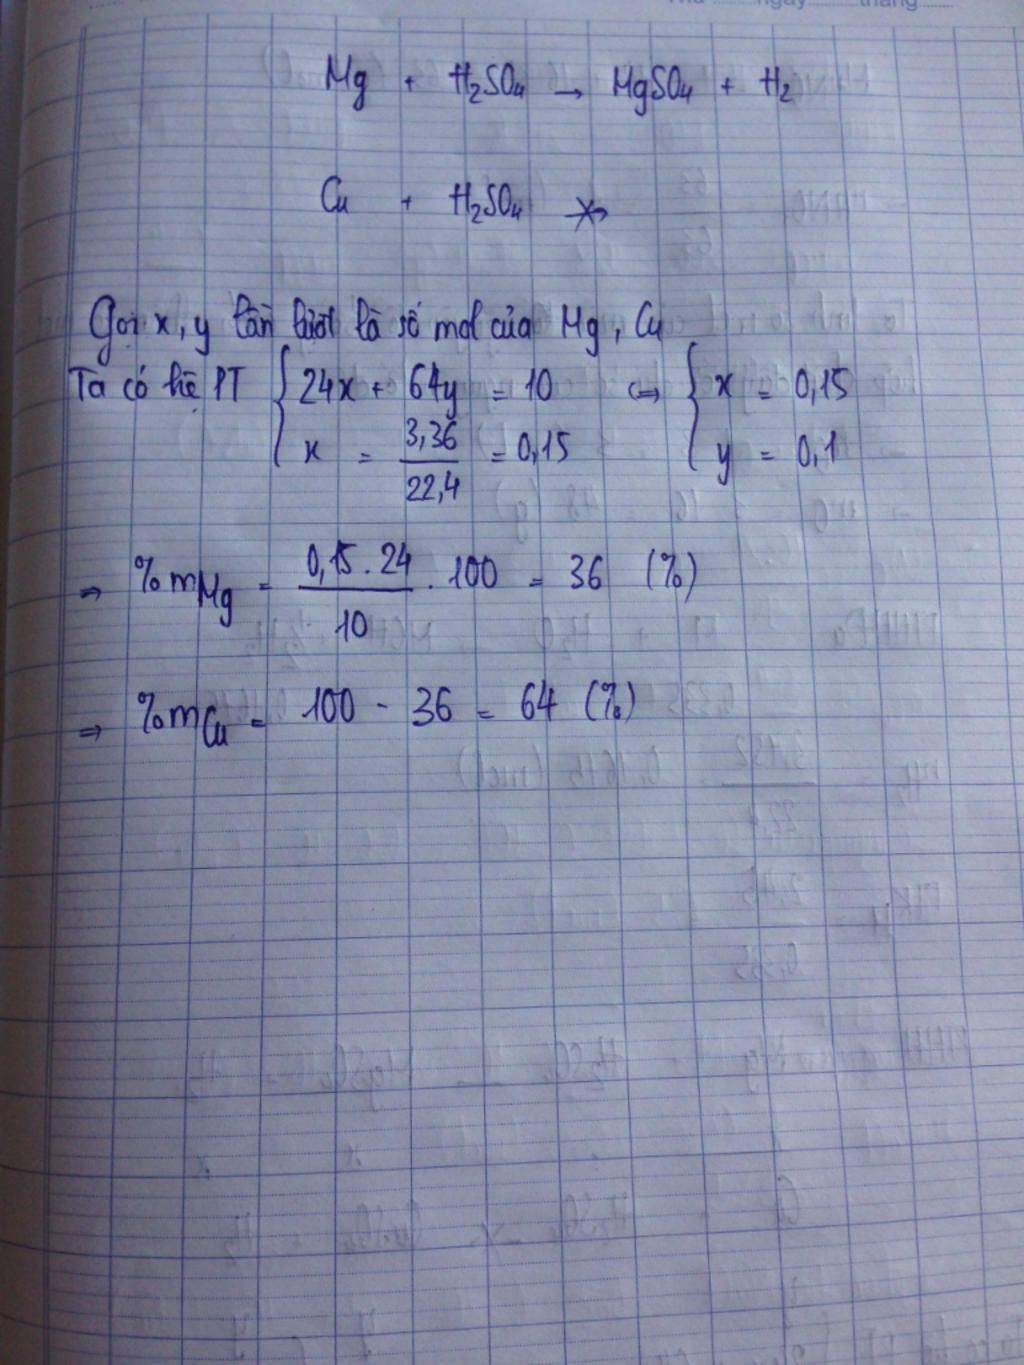 Mg + H₂SO₄ → MgSO₄ + H₂
Cu + H₂SO₄ ↛
Gọi x, y lần lượt là số mol của Mg, Cu
Ta có hệ PT { 24x + 64y = 10 ⇔ { x = 0,15
x = 3,36/22,4 = 0,15 y = 0,1
⇒ %mMg = 0,15.24/10 . 100 = 36 (%)
⇒ %mCu = 100 - 36 = 64 (%)